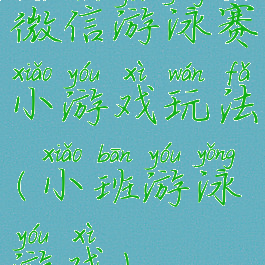 微信游泳赛
xiǎo yóu xì wán fǎ
小游戏玩法
xiǎo bān yóu yǒng
(小班游泳
yóu xì
游戏)